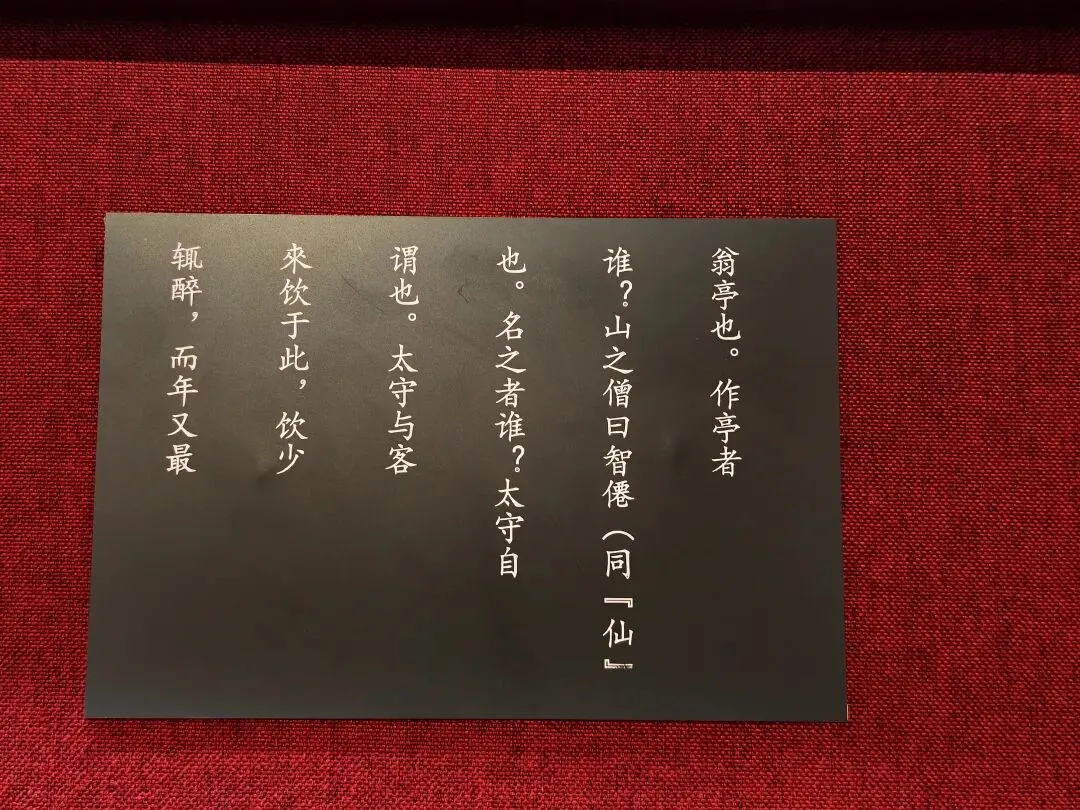 翁亭也。作亭者
谁？山之僧曰智僊（同『仙』
也。名之者谁？太守自
谓也。太守与客
來饮于此，饮少
辄醉，而年又最